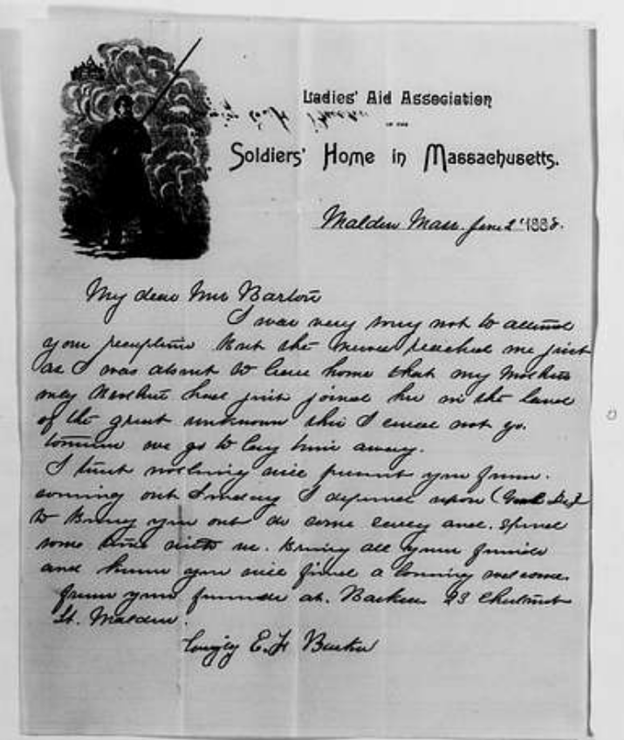 Ladies' Aid Association
OF THE
Soldiers' Home in Massachusetts.
Malden Mass. June 2" 1888.
My dear Miss Barton
I was very sorry not to attend
your reception But the news reached me just
as I was about to leave home that my Mother's
only Brother had just joined her in the land
of the great unknown this I could not go.
tomorrow we go to lay him away.
I trust nothing will prevent you from
coming out Sunday I depend upon
to Bring you out do come early and spend
some time with us. Bring all your friends
and know you will find a loving welcome
from your friends at. Barker 23 Chestnut
St. Malden.
E. F. Barker